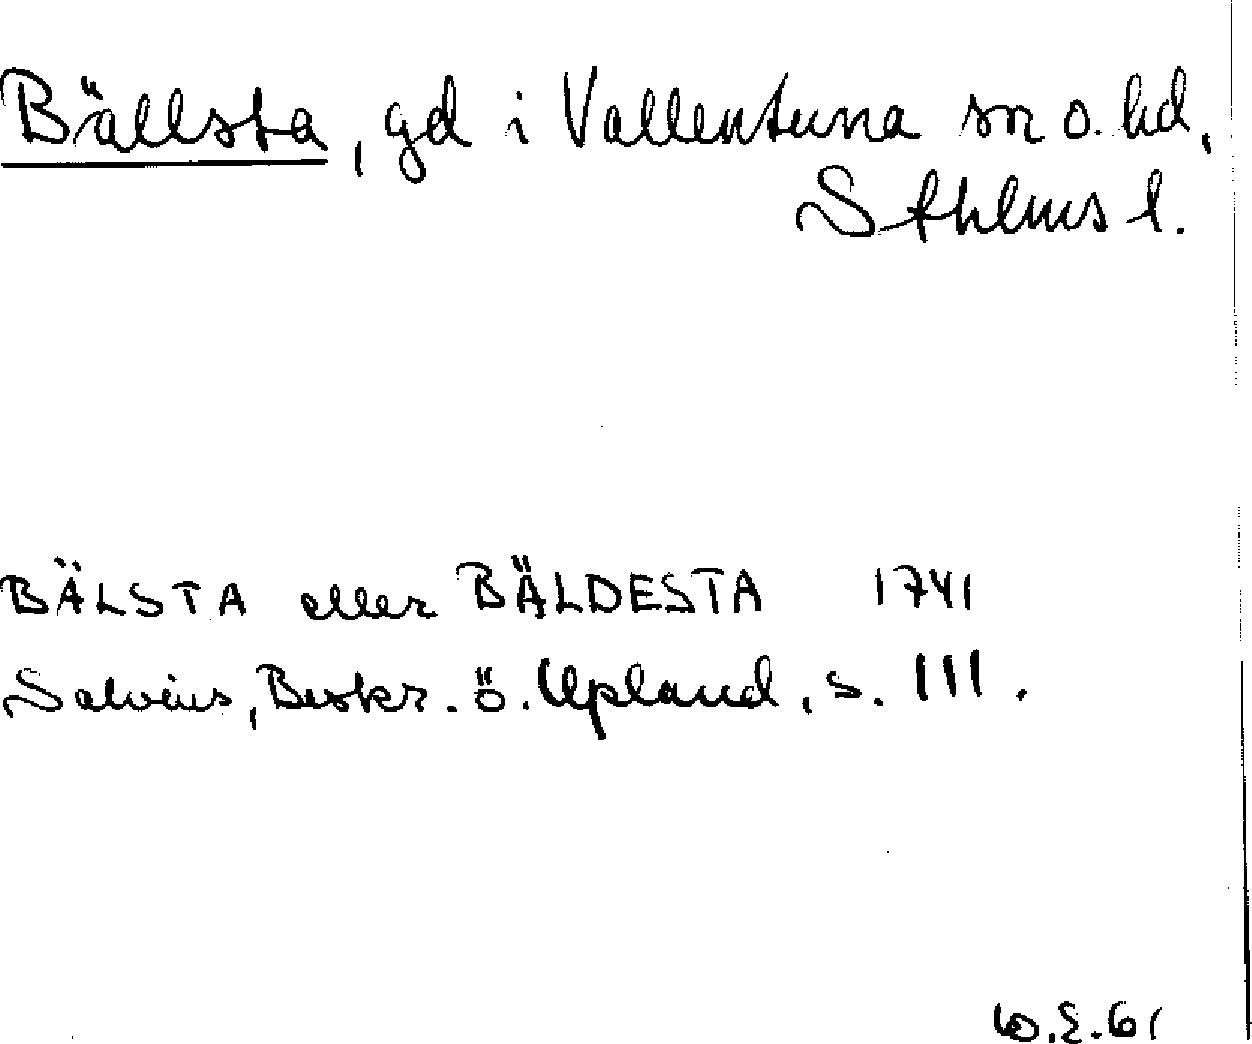 Bällsta, gd i Vallentuna sn o. hd,
Sthlms l.
BÄLSTA eller BÄLDESTA 1741
Salvius, Beskr. ö. Upland, s. 111.